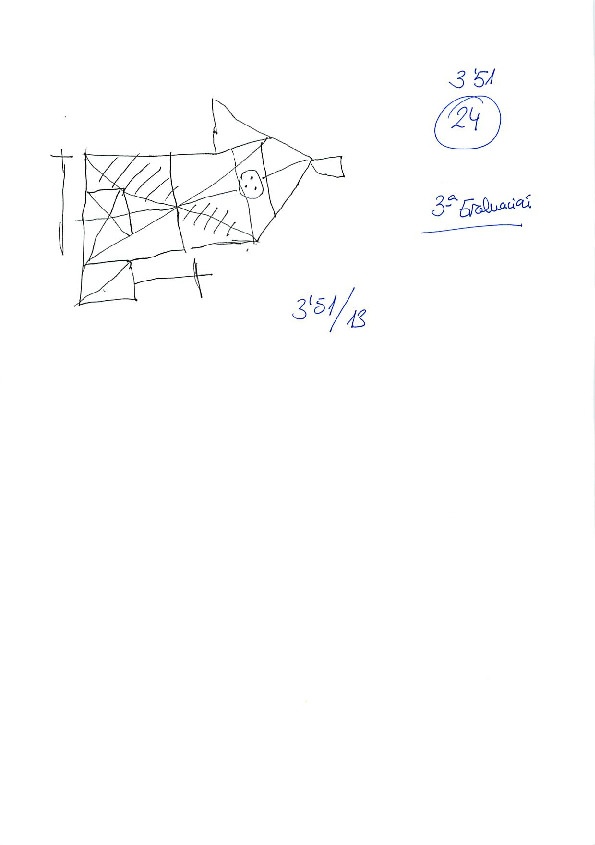 3'51
24
3ª Evaluación
3'51/13